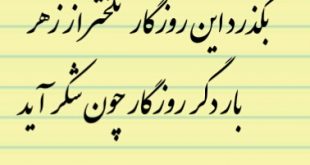 بگذرد این روزگار تلختر از زهر
بار دگر روزگار چون شکر آید